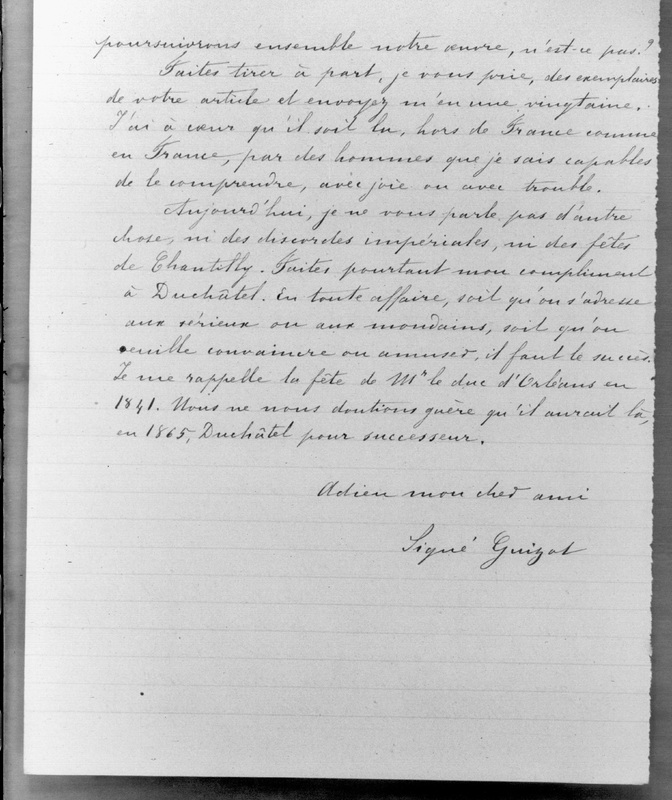 poursuivrons ensemble notre œuvre, n'est-ce pas ?
Faites tirer à part, je vous prie, des exemplaires
de votre article et envoyez m'en une vingtaine.
J'ai à cœur qu'il soit lu, hors de France comme
en France, par des hommes que je sais capables
de le comprendre, avec joie ou avec trouble.
Aujourd'hui, je ne vous parle pas d'autre
chose, ni des discordes impériales, ni des fêtes
de Chantilly. Faites pourtant mon compliment
à Duchâtel. En toute affaire, soit qu'on s'adresse
aux sérieux ou aux mondains, soit qu'on
veuille convaincre ou amuser, il faut le succès.
Je me rappelle la fête de Mr le duc d'Orléans en
1841. Nous ne nous doutions guère qu'il aurait là,
en 1865, Duchâtel pour successeur.
Adieu mon cher ami
Signé Guizot